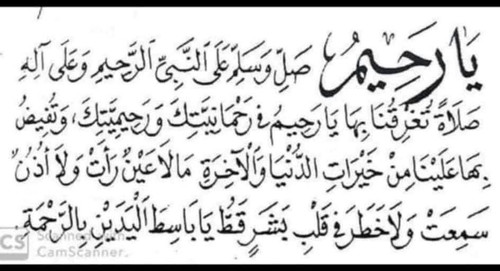 يَا رَحِيمُ صَلِّ وَسَلِّمْ عَلَى النَّبِيِّ الرَّحِيمِ وَعَلَى آلِهِ
صَلَاةً تُغْرِقُنَا بِهَا يَا رَحِيمُ فِي رَحْمَانِيَّتِكَ وَرَحِيمِيَّتِكَ، وَتُفِيضُ
بِهَا عَلَيْنَا مِنْ خَيْرَاتِ الدُّنْيَا وَالْآخِرَةِ مَا لَا عَيْنٌ رَأَتْ وَلَا أُذُنٌ
سَمِعَتْ وَلَا خَطَرَ فِي قَلْبِ بَشَرٍ قَطُّ يَا بَاسِطَ الْيَدَيْنِ بِالرَّحْمَةِ.
CS Scanned with
CamScanner